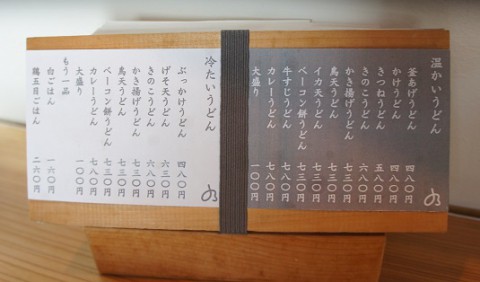 温かいうどん
釜あげうどん 四八〇円
かけうどん 四八〇円
きつねうどん 五八〇円
きのこうどん 六八〇円
かき揚げうどん 七三〇円
鳥天うどん 七三〇円
イカ天うどん 七三〇円
ベーコン餅うどん 七三〇円
牛すじうどん 七八〇円
カレーうどん 七八〇円
大盛り 一〇〇円
冷たいうどん
ぶっかけうどん 四八〇円
げそ天うどん 六三〇円
きのこうどん 六八〇円
かき揚げうどん 七三〇円
鳥天うどん 七三〇円
ベーコン餅うどん 七三〇円
カレーうどん 七八〇円
大盛り 一〇〇円
もう一品
白ごはん 一六〇円
鶏五目ごはん 二六〇円